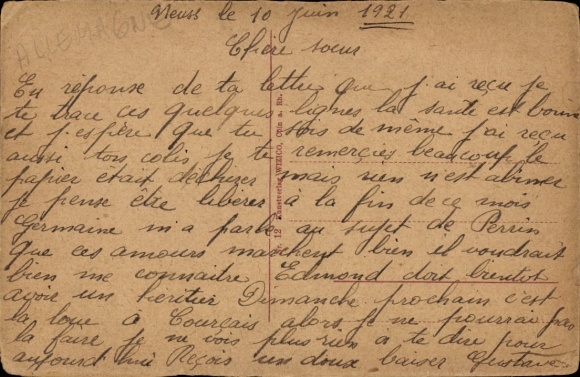 Neuss le 10 juin 1921
ALLEMAGNE
Chère sœur
En réponse de ta lettre que j'ai reçu je
te trace ces quelques lignes la santé est bonne
et j'espère que tu sois de même j'ai reçu
aussi ton colis je te remercies beaucoup le
papier etait dechirer mais rien n'est abimer
je pense être libérer à la fin de ce mois
Germaine m'a parlé au sujet de Perrin
que ces amours marchent bien il voudrait
bien me connaitre Edmond doit bientot
avoir un heritier Dimanche prochain c'est
la loue à Courçais alors je ne pourrai pas
la faire je ne vois plus rien à te dire pour
aujourd'hui Reçois un doux baiser Gustave
Nr. 12 Kunstverlag WIZICO, Cöln a. Rh.